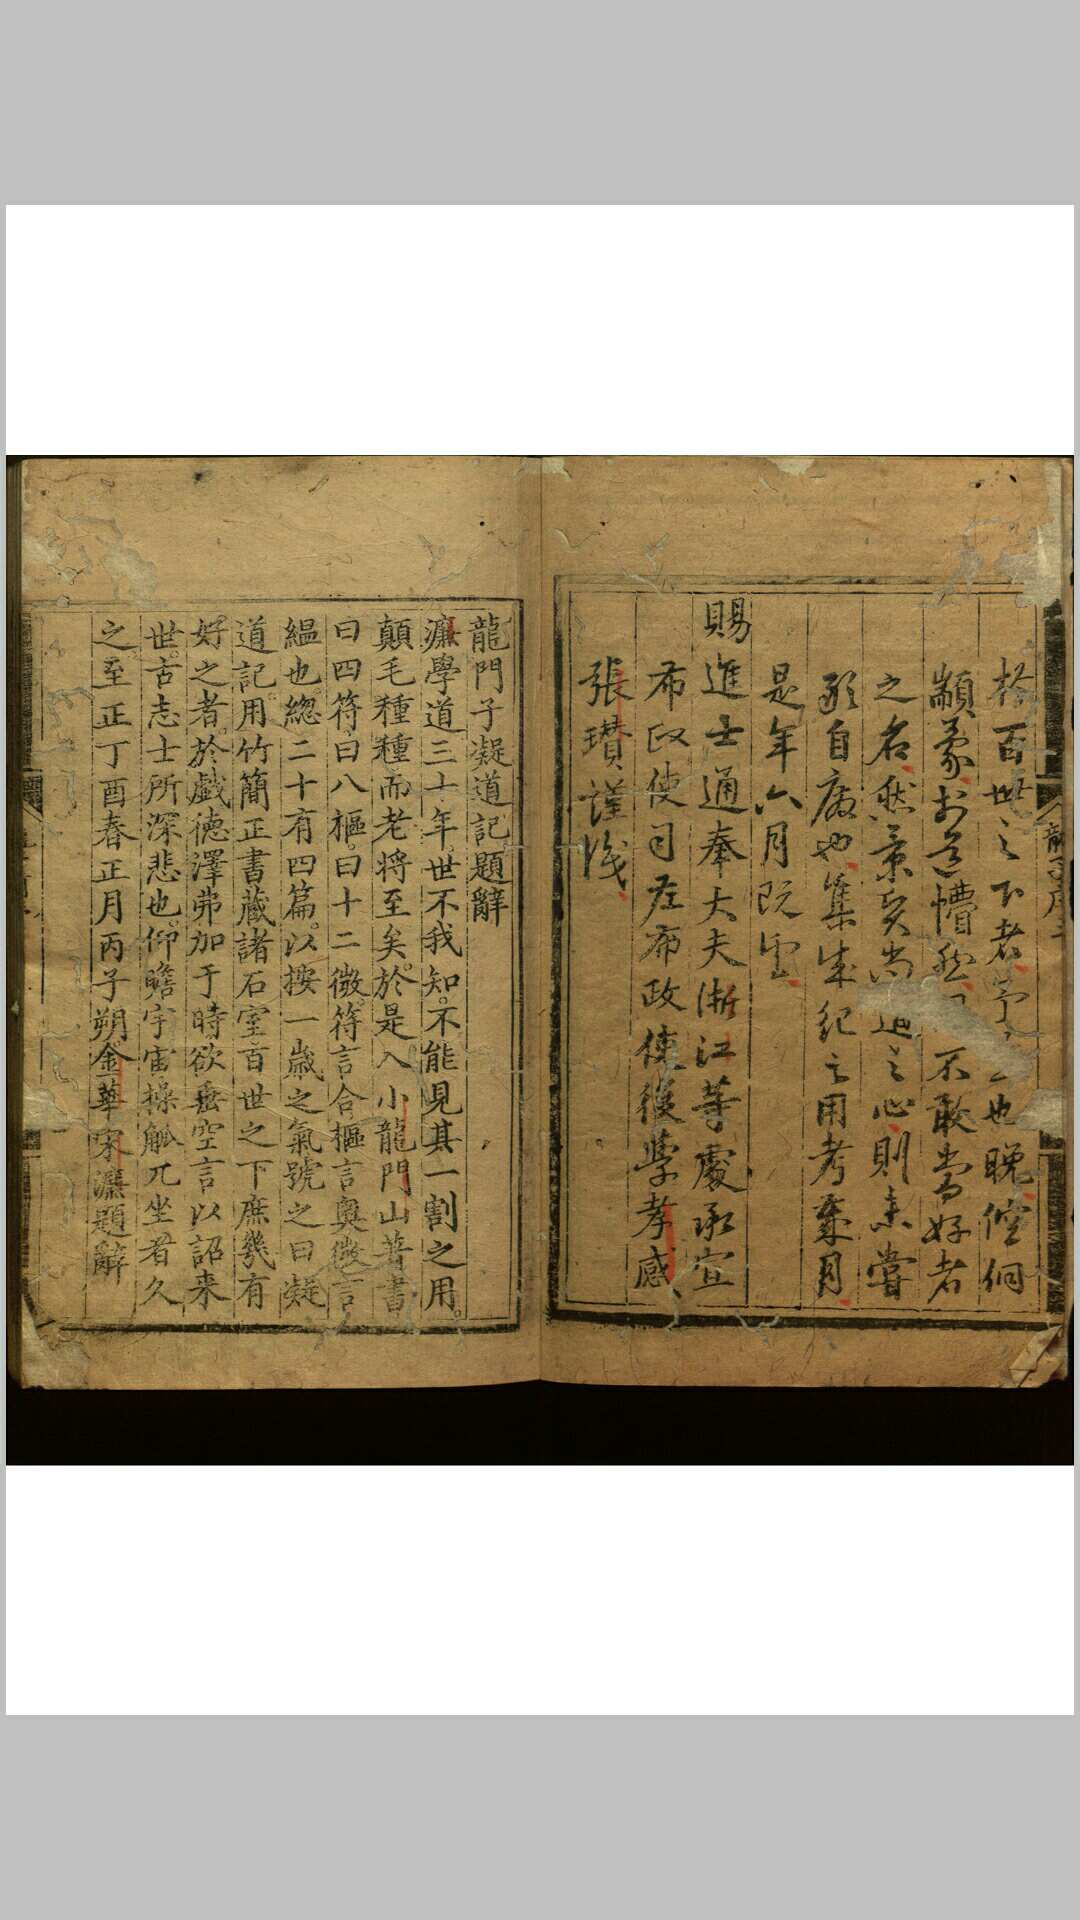 於百世之下者
顓蒙於道懵然不敢當好者
之名然景賢尚過之心則未嘗
敢自廢也集成紀之用考歲月
是年六月既望
賜進士通奉大夫浙江等處承宣
布政使司左布政使後學孝感
張瓚謹識
龍門子凝道記題辭
濂學道三十年世不我知不能見其一割之用
顛毛種種而老將至矣於是入小龍門山著書
曰四符曰八樞曰十二微符言合樞言奧微言
緼也總二十有四篇以按一歲之氣號之曰凝
道記用竹簡正書藏諸石室百世之下庶幾有
好之者於戲德澤弗加于時欲垂空言以詔来
世古志士所深悲也仰瞻宇宙操觚兀坐者久
之至正丁酉春正月丙子朔金華宋濂題辭